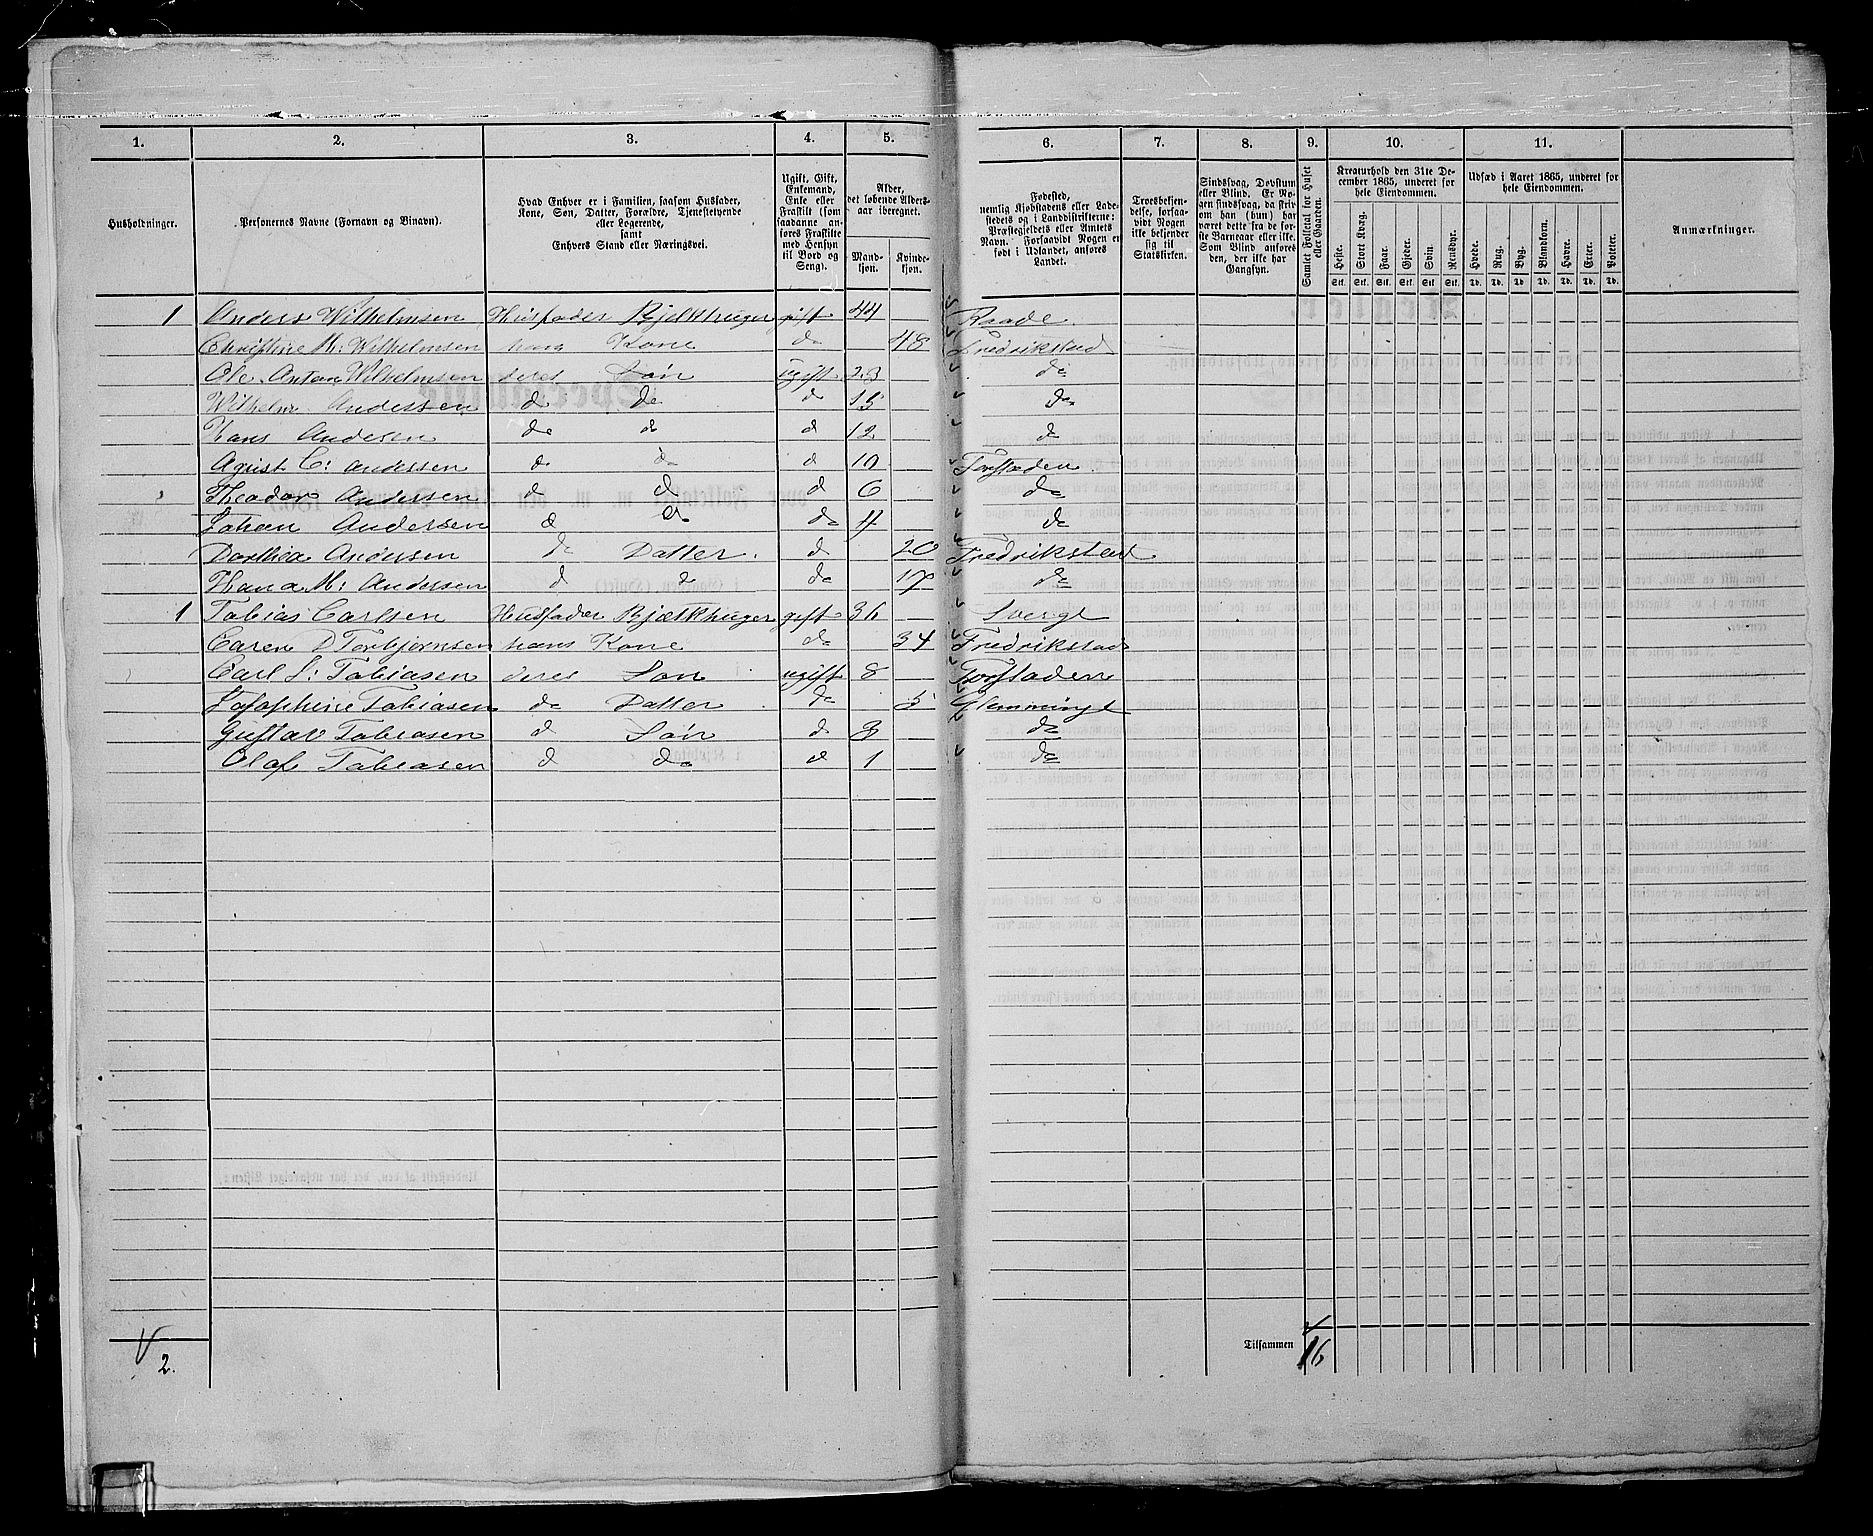 1. 2. 3. 4. 5. 6. 7. 8. 9. 10. 11.
Husholdninger.
Personernes Navne (Fornavn og Binavn).
Hvad Enhver er i Familien, saasom Husfader,
Kone, Søn, Datter, Forældre, Tjenestetyende
eller Logerende,
samt
Enhvers Stand eller Næringsvei.
Ugift, Gift,
Enkemand,
Enke eller
Fraskilt (som
saadanne an-
føres Fraskilte
med Hensyn
til Bord og
Seng).
Alder,
det løbende Alders-
aar iberegnet.
Mand-
kjøn.
Kvinde-
kjøn.
Fødested,
nemlig Kjøbstadens eller Lade-
stedets og i Landdistrikterne:
Præstegjeldets eller Amtets
Navn. Forsaavidt Nogen er
født i Udlandet, anføres
Landet.
Troesbekjen-
delse, forsaa-
vidt Nogen
ikke bekjender
sig til
Statskirken.
Sindssvag, Døvstum
eller Blind. Er No-
gen sindssvag, da skriv
om han (hun) har
været dette fra de før-
ste Barneaar eller ikke.
Som Blind anføres
den, der ikke har
Gangsyn.
Samlet Folketal for Huset
eller Gaarden.
Kreaturhold den 31te De-
cember 1865, underet for
hele Eiendommen.
Heste. Stort Kvæg. Faar. Gjeder. Svin. Rensdyr.
Stk. Stk. Stk. Stk. Stk. Stk.
Udsæd i Aaret 1865, underet for
hele Eiendommen.
Hvede. Rug. Byg. Blandkorn. Havre. Erter. Poteter.
Td. Td. Td. Td. Td. Td. Td.
Anmærkninger.
1 Anders Wilhelmsen Husfader Bjelkhuger gift 44 Raade
Christine M: Wilhelmsen hans Kone do 48 Fredrikstad
Ole Anton Wilhelmsen deres Søn ugift 23 do
Wilhelm Anderssen d do d 15 do
Hans Andersen do d d 12 d
Agust C: Anderssen d do d 10 Torstøden
Theodor Anderssen d d d 6 do
Johan Andersen d d do 4 do
Dorthea Andersen do Datter d 20 Fredrikstad
Hana M: Andersen d d do 17 do
1 Tobias Carlsen Husfader Bjælkhuger gift 36 Sverge
Caren D Torbjørnsen hans Kone do 34 Fredrikstad
Carl S: Tobiasen deres Søn ugift 8 Torstøden
Josephine Tobiasen do Datter do 5 Glemminge
Gustav Tobiasen d Søn d 3 do
Olaf Tobiasen d do d 1 do
2. Tilsammen 16